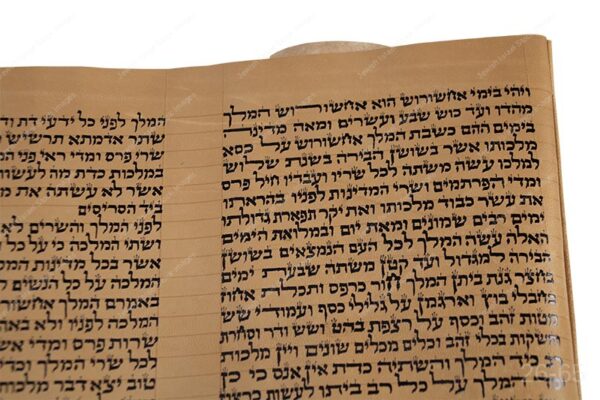 ויהי בימי אחשורוש הוא אחשורוש המלך
מהדו ועד כוש שבע ועשרים ומאה מדינה
בימים ההם כשבת המלך אחשורוש על כסא
מלכותו אשר בשושן הבירה בשנת שלוש
למלכו עשה משתה לכל שריו ועבדיו חיל פרס
ומדי הפרתמים ושרי המדינות לפניו בהראתו
את עשר כבוד מלכותו ואת יקר תפארת גדולתו
ימים רבים שמונים ומאת יום ובמלואת הימים
האלה עשה המלך לכל העם הנמצאים בשושן
הבירה למגדול ועד קטן משתה שבעת ימים
בחצר גנת ביתן המלך חור כרפס ותכלת אחוז
בחבלי בוץ וארגמן על גלילי כסף ועמודי שש
מטות זהב וכסף על רצפת בהט ושש ודר וסחרת
והשקות בכלי זהב וכלים מכלים שונים ויין מלכות
רב כיד המלך והשתיה כדת אין אנס כי כן
המלך על כל רב ביתו לעשות כרצון
המלך לפני כל ידעי דת
שתר אדמתא תרשיש
שרי פרס ומדי ראי פני
במלכות כדת מה לעשות
אשר לא עשתה את
ביד הסריסים
לפני המלך והשרים לא
ושתי המלכה כי על כל
אשר בכל מדינות
המלכה על כל הנשים
באמרם המלך
המלכה לפניו ולא באה
שרות פרס ומדי
לכל שרי המלך וכדי
טוב יצא דבר מלכות